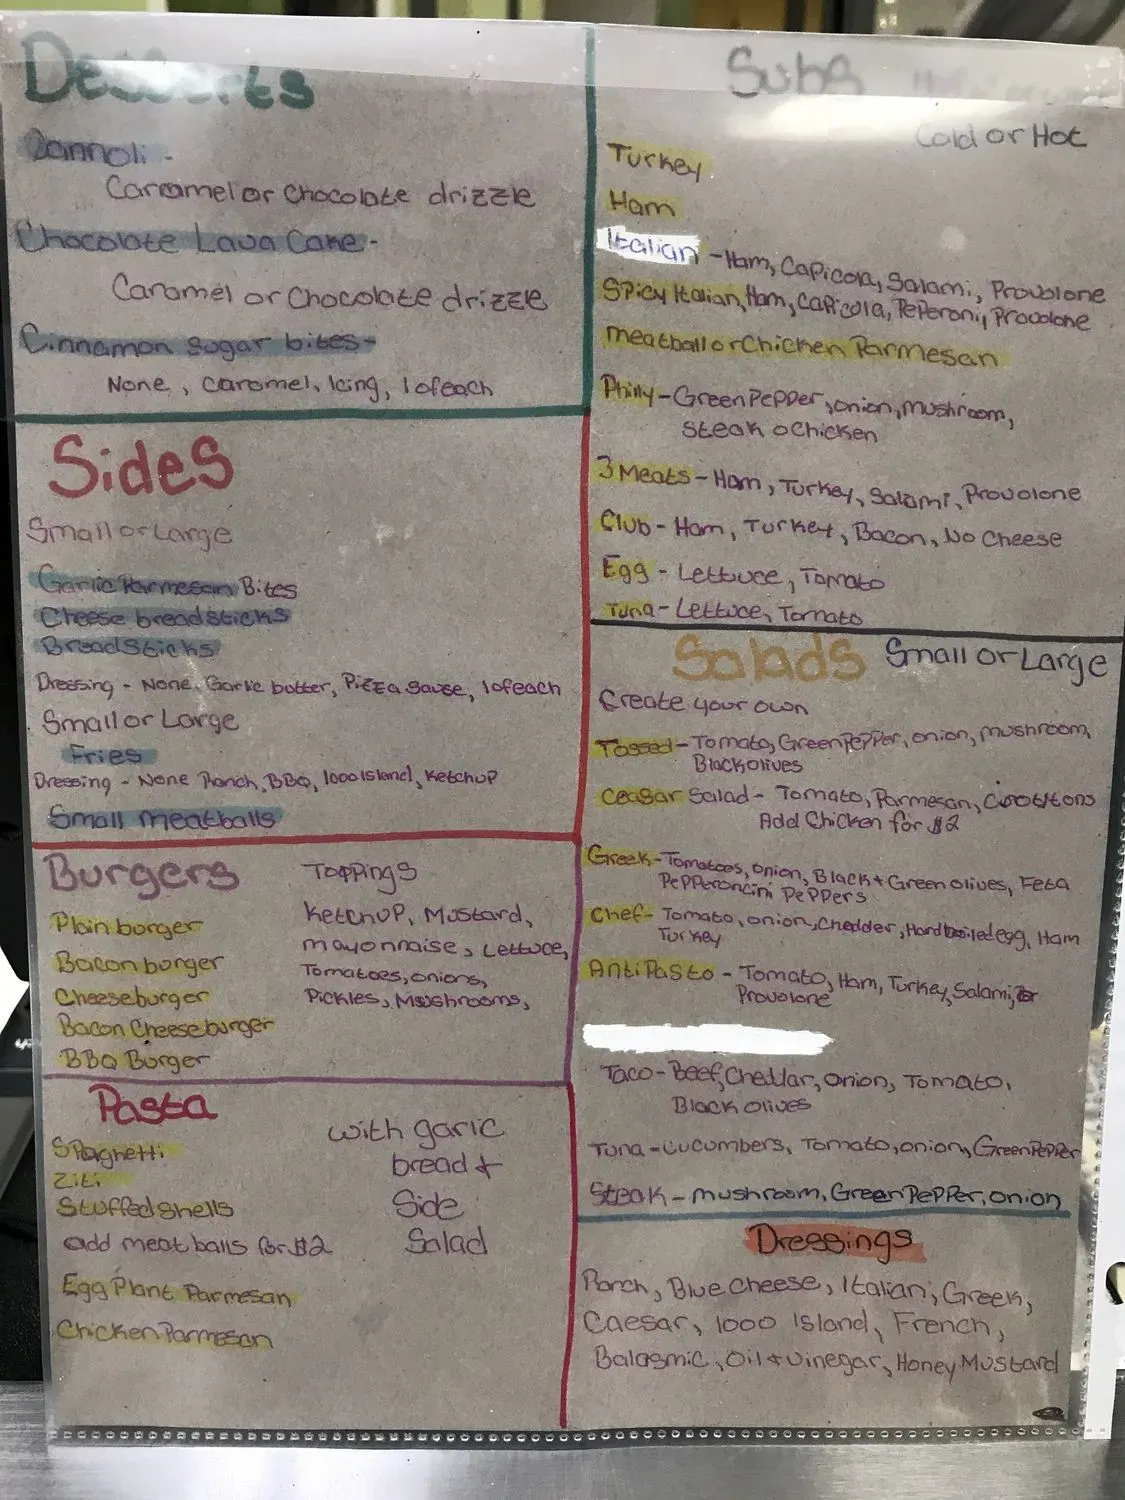 Desserts
Cannoli -
Caramel or Chocolate drizzle
Chocolate Lava Cake -
Caramel or Chocolate drizzle
Cinnamon sugar bites -
None, Caramel, Icing, 1 of each
Sides
Small or Large
Garlic Parmesan Bites
Cheese breadsticks
Breadsticks
Dressing - None, Garlic butter, Pizza Sause, 1 of each
Small or Large
Fries
Dressing - None Ranch, BBQ, 1000 Island, Ketchup
Small meatballs
Burgers
Toppings
Plain burger
Bacon burger
Cheeseburger
Bacon Cheeseburger
BBQ Burger
Ketchup, Mustard,
mayonnaise, Lettuce,
Tomatoes, onions,
Pickles, Mushrooms,
Pasta
with garic
bread +
Side
Salad
Spaghetti
Ziti
Stuffed Shells
add meatballs for $2
Egg Plant Parmesan
Chicken Parmesan
Subs
Cold or Hot
Turkey
Ham
Italian - Ham, Capicola, Salami, Provolone
Spicy Italian, Ham, Capicola, Peperoni, Provolone
Meatball or Chicken Parmesan
Philly - Green Pepper, onion, mushroom,
Steak o Chicken
3 Meats - Ham, Turkey, Salami, Provolone
Club - Ham, Turkey, Bacon, No Cheese
Egg - Lettuce, Tomato
Tuna - Lettuce, Tomato
Salads Small or Large
Create your own
Tossed - Tomato, Green Pepper, onion, mushroom,
Black olives
Ceasar Salad - Tomato, Parmesan,
Add Chicken for $2
Greek - Tomatoes, onion, Black + Green olives, Feta
Pepperoncini Peppers
Chef - Tomato, onion, Chedder, Hard boiled egg, Ham
Turkey
AntiPasto - Tomato, Ham, Turkey, Salami,
Provolone
Taco - Beef, Cheddar, onion, Tomato,
Black olives
Tuna - Cucumbers, Tomato, onion, Green Pepper
Steak - mushroom, Green Pepper, onion
Dressings
Ranch, Blue Cheese, Italian, Greek,
Caesar, 1000 Island, French,
Balasmic, Oil + Vinegar, Honey Mustard